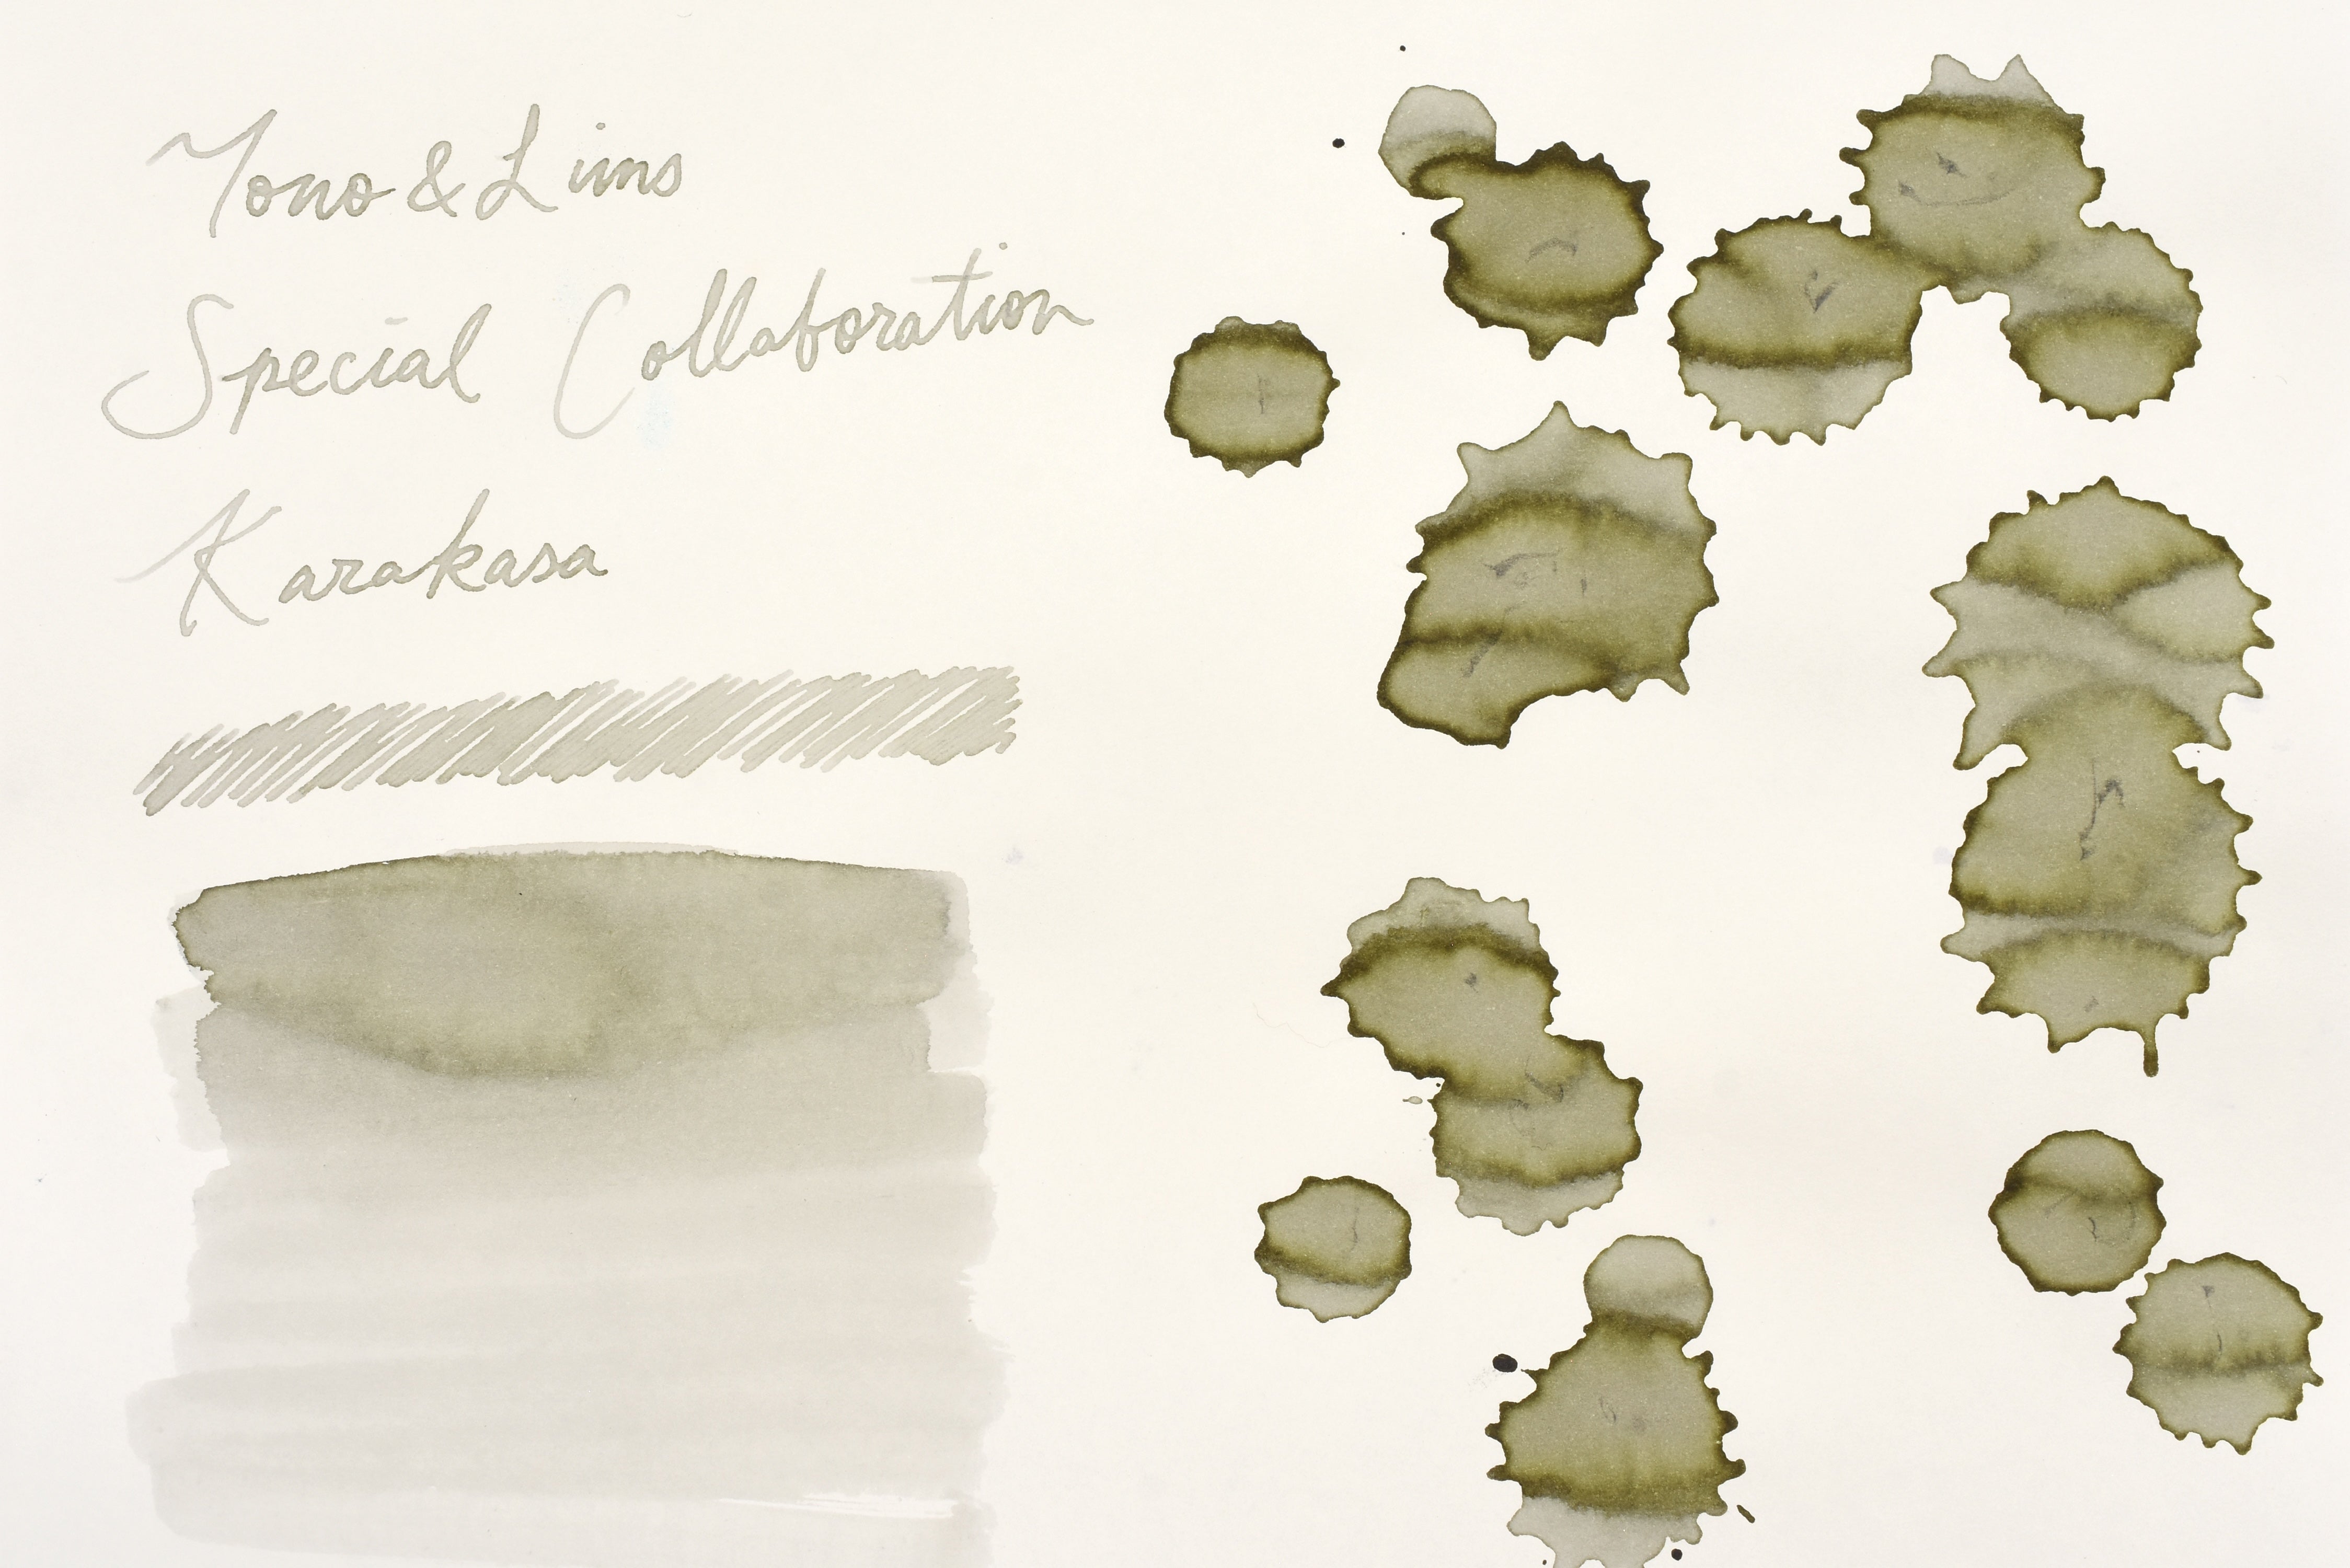 Tono & Lims
Special Collaboration
Karakasa